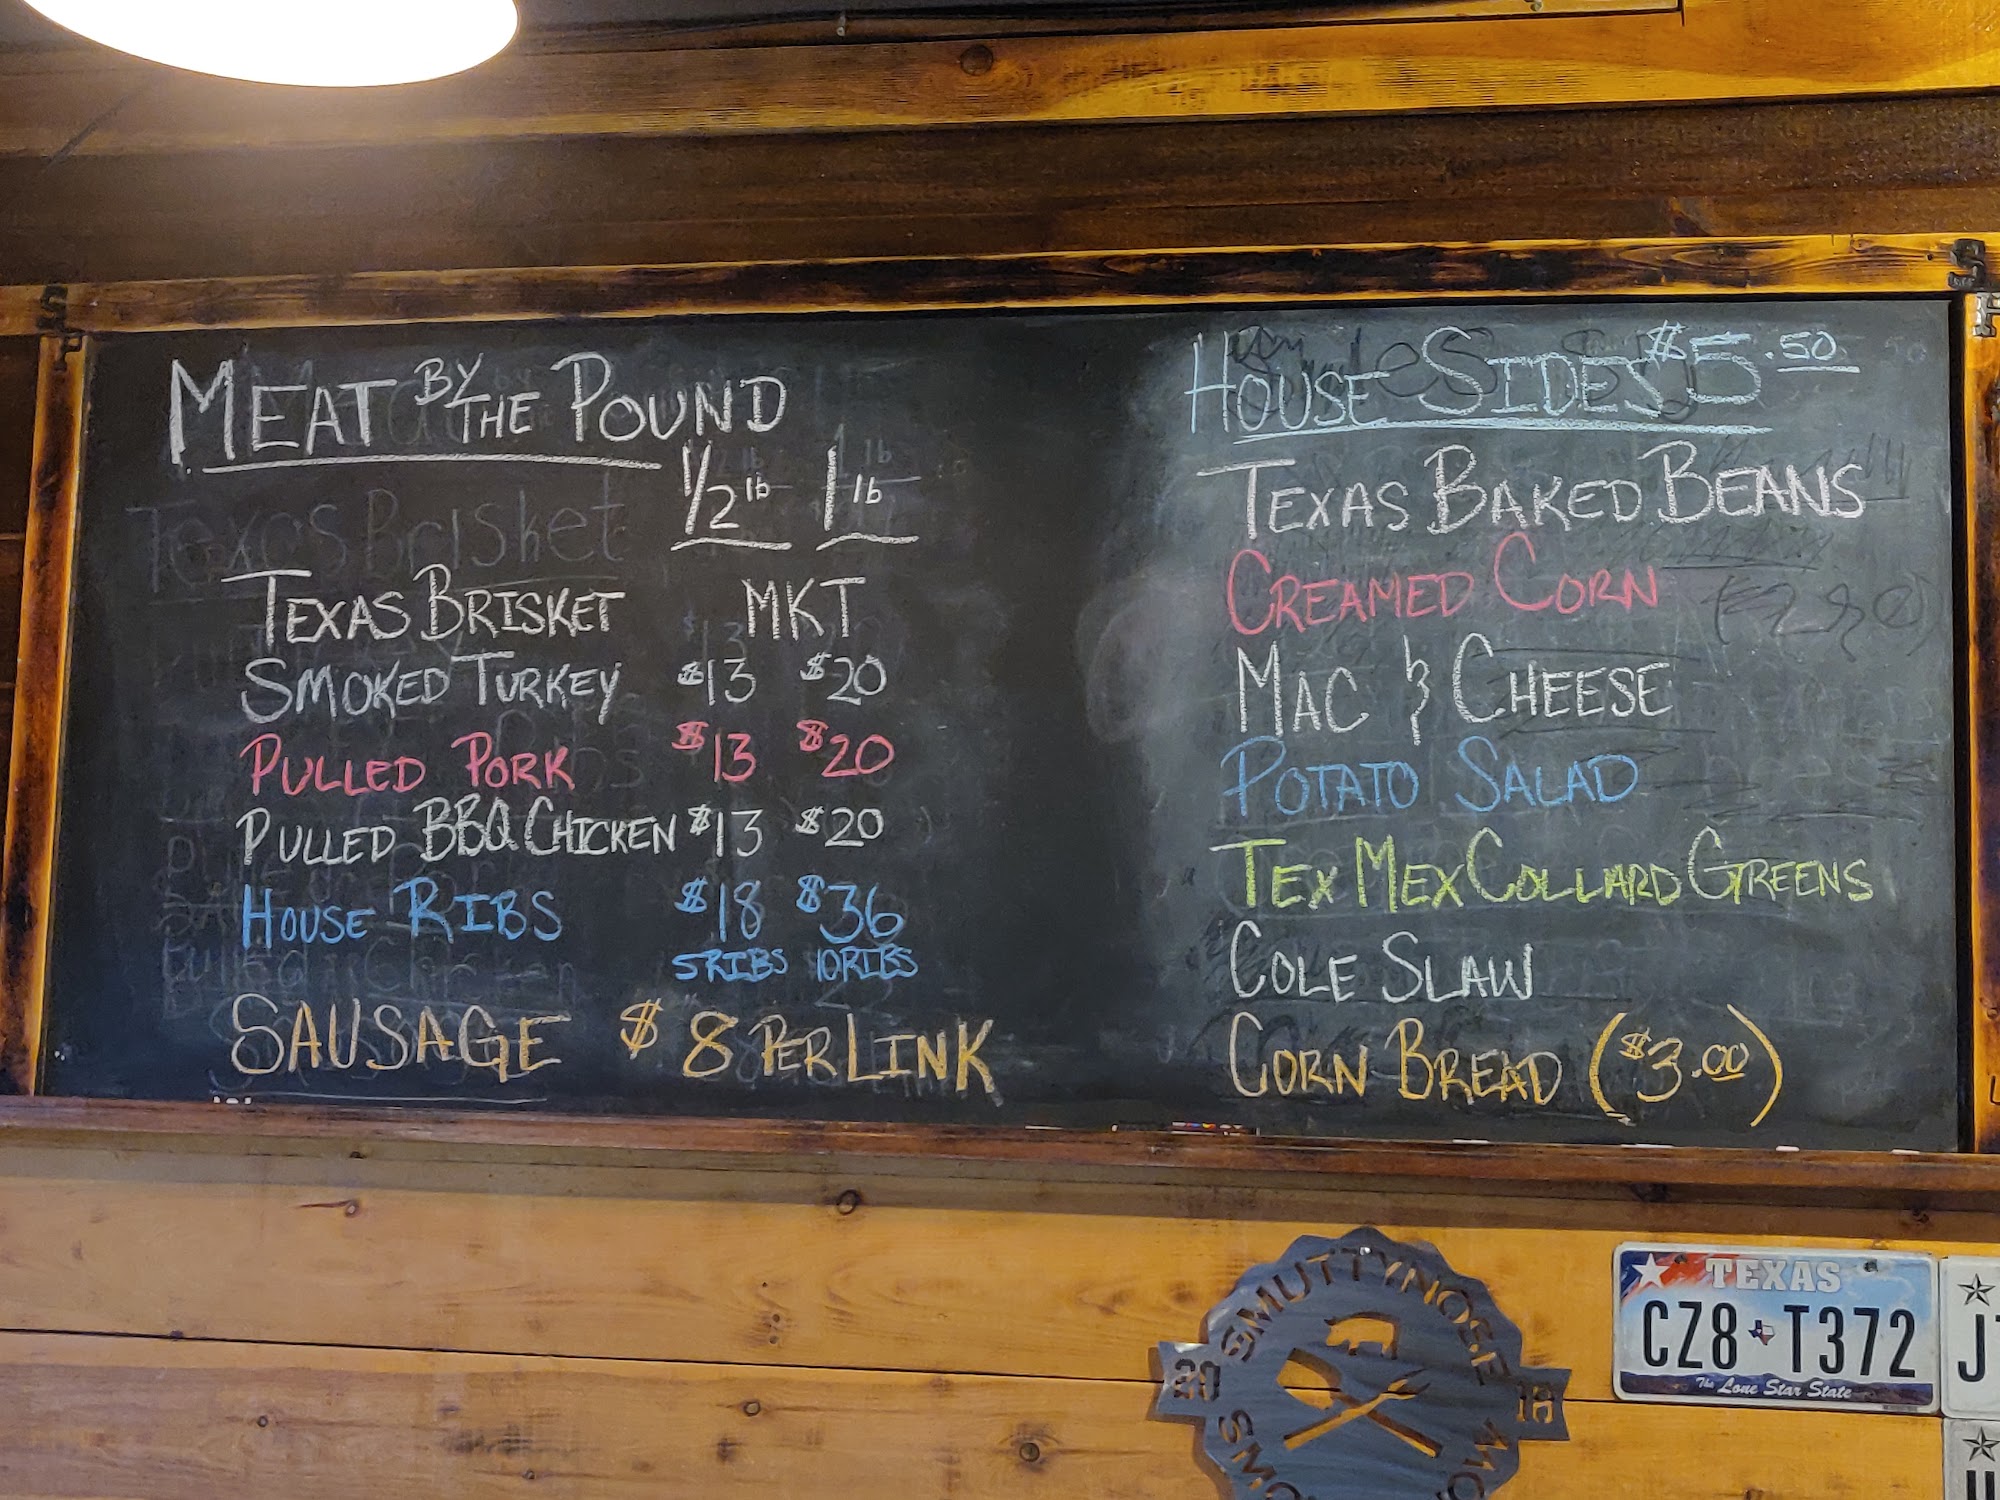 MEAT BY THE POUND
1/2 lb 1 lb
TEXAS BRISKET MKT
SMOKED TURKEY $13 $20
PULLED PORK $13 $20
PULLED BBQ CHICKEN $13 $20
HOUSE RIBS $18 $36
5 RIBS 10 RIBS
SAUSAGE $8 PER LINK
HOUSE SIDES $5.50
TEXAS BAKED BEANS
CREAMED CORN
MAC & CHEESE
POTATO SALAD
TEX MEX COLLARD GREENS
COLE SLAW
CORN BREAD ($3.00)
Texas Brisket
SMUTTYNOSE
20 18
TEXAS
CZ8 T372
The Lone Star State